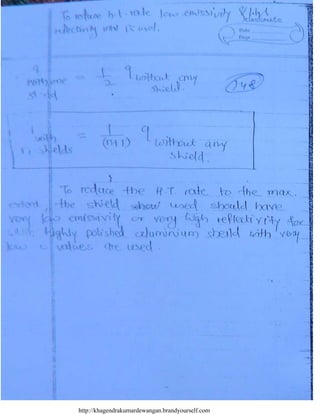 To reduce h.t. rate low emissivity & high
reflectivity is used.
classmate
Date
Page
q with one shield = 1/2 q without any shield.
148
q with n, shields = 1/(n+1) q without any shield.
To reduce the H.T. rate to the max.
extent, the shield used should have
very low emissivity or very high reflectivity for
highly polished aluminium sheild with very
low values are used.
http://khagendrakumardewangan.brandyourself.com